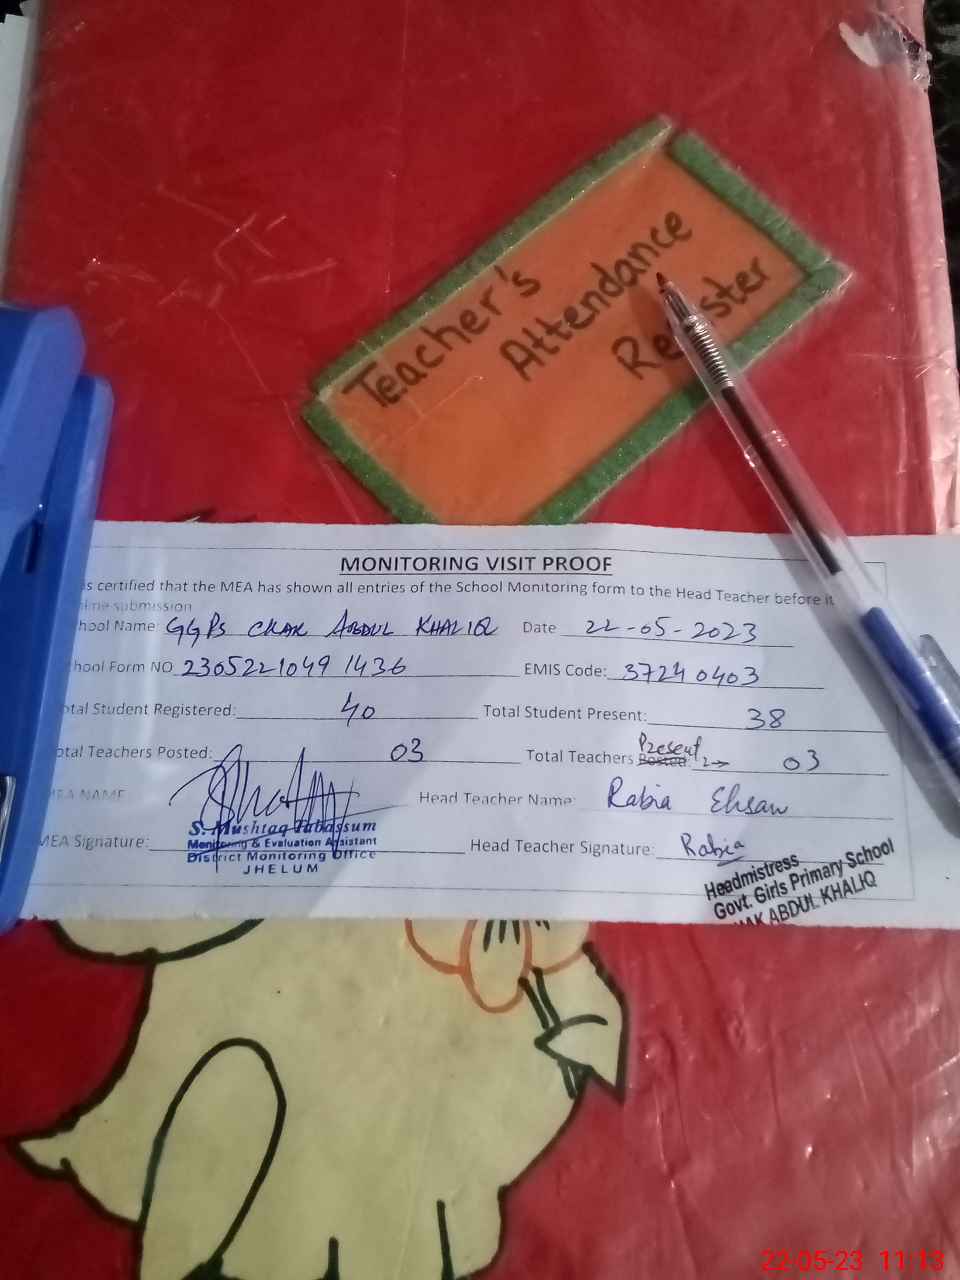 Teacher's
Attendance
Register
MONITORING VISIT PROOF
is certified that the MEA has shown all entries of the School Monitoring form to the Head Teacher before it
line submission
hool Name: GGPS CHAK ABDUL KHALIQ Date 22-05-2023
hool Form NO 2305221049 1436 EMIS Code: 37240403
otal Student Registered: 40 Total Student Present: 38
otal Teachers Posted: 03 Total Teachers Posted: Present 03
MEA NAME Head Teacher Name: Rabia Ehsan
S. Mushtaq Tabassum
MEA Signature: Monitoring & Evaluation Assistant Head Teacher Signature: Rabia
District Monitoring Office
JHELUM
Headmistress
Govt. Girls Primary School
HAK ABDUL KHALIQ
22-05-23 11:13